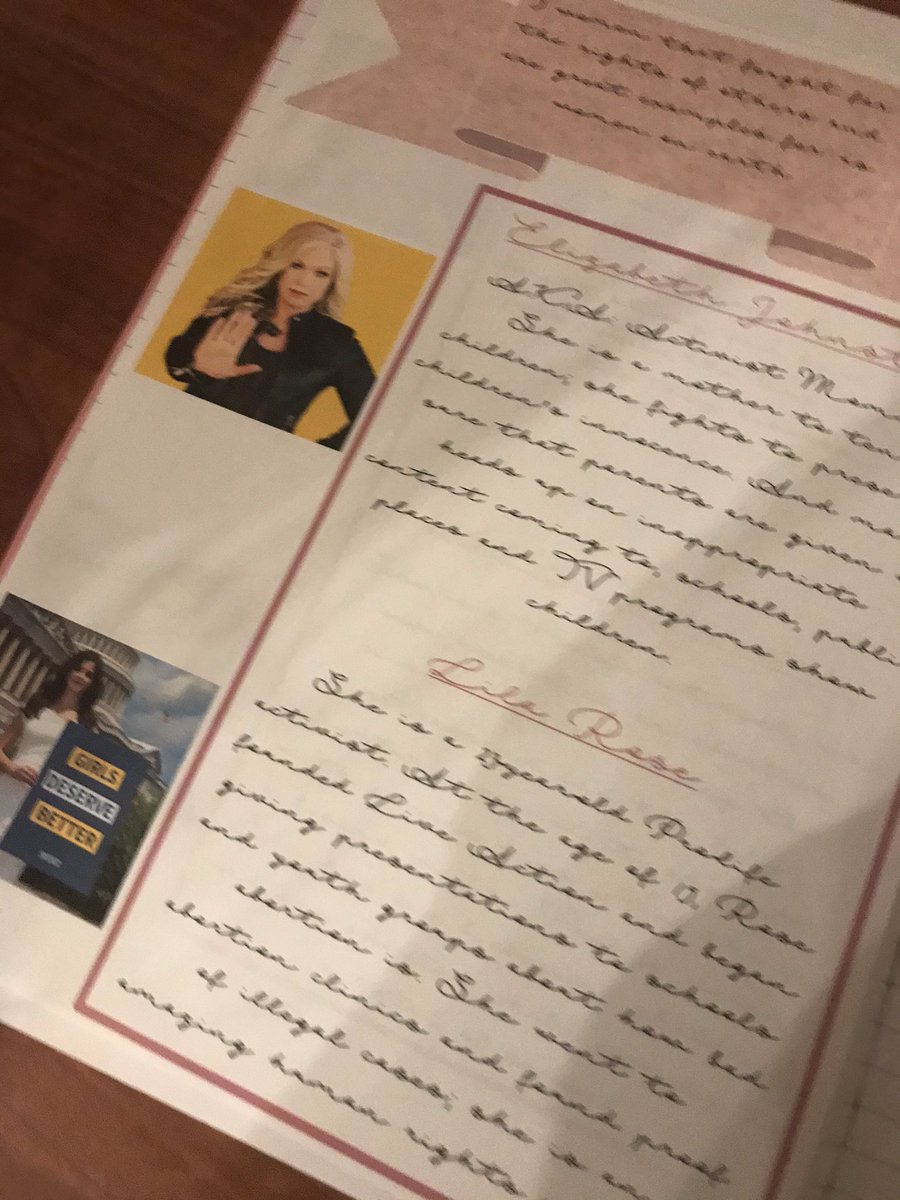 women that fought for
the rights of others and
are great examples for us
women on earth
Elizabeth Johnst
A.K.A: Activist Mom
She is a mother to ten
children; she fights to prese
children's innocence. And ma
sure that parents are given
heads up on inappropriate
content coming to, schools, publi
places and TV programs show
children.
GIRLS
DESERVE
BETTER
Lila Rose
She is a Prolife
activist. At the age of Rose
founded Live Action and began
giving presentations to schools
and youth groups about how bad
abortion is. She went to
abortion clinics and found proof
of illegal cases; she is an
amazing human rights